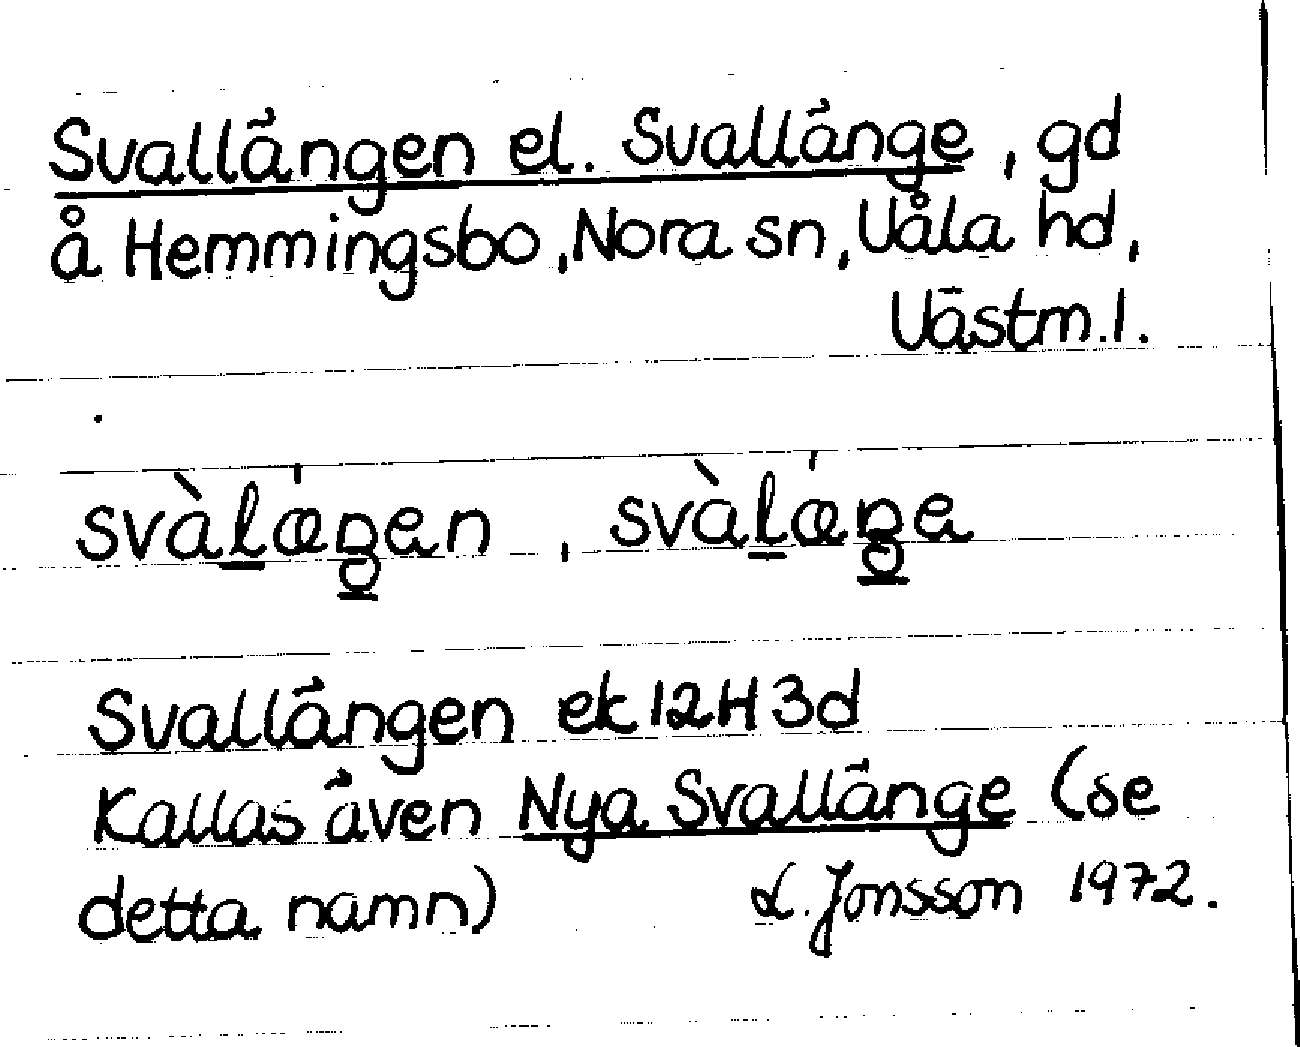 Svallängen el. Svallänge, gd
å Hemmingsbo, Nora sn, Våla hd,
Västm. l.
svàlǽŋen, svàlǽŋe
Svallängen ek 12H 3d
Kallas även Nya Svallänge (se
detta namn) L. Jonsson 1972.